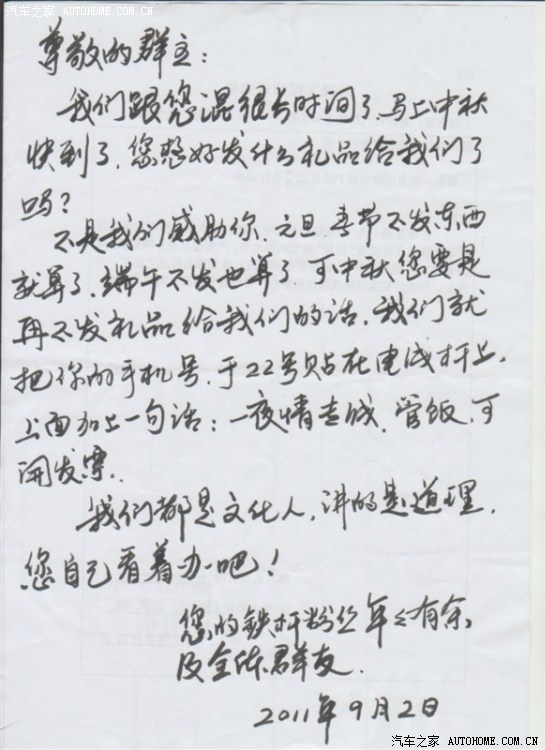 汽车之家 AUTOHOME.COM.CN
尊敬的群主：
我们跟您混很长时间了，马上中秋
快到了，您想好发什么礼品给我们了
吗？
不是我们威助你，元旦、春节不发东西
就算了，端午不发也算了，可中秋您要是
再不发礼品给我们的话，我们就
把你的手机号，于22号贴在电线杆上，
上面加上一句话：一夜情 ，管饭，可
开发票。
我们都是文化人，讲的是道理，
您自己看着办吧！
您的铁杆粉丝年々有余
及全体群友.
2011年9月2日
汽车之家 AUTOHOME.COM.CN